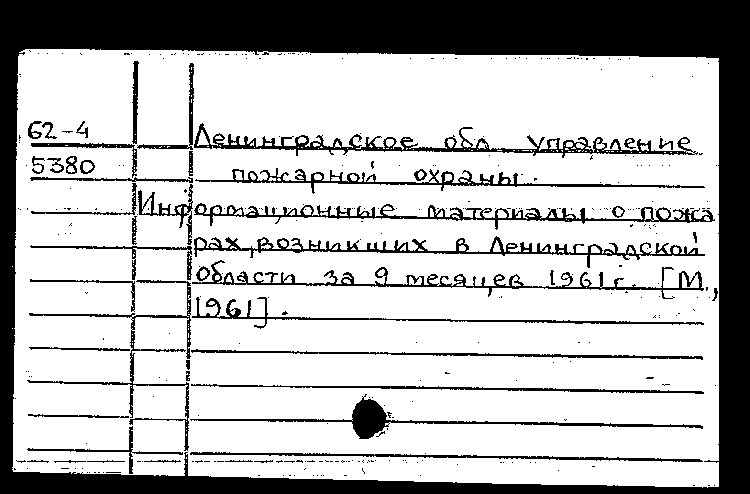 62-4 Ленинградское обл. управление
5380 пожарной охраны.
Информационные материалы о пожа
рах, возникших в Ленинградской
области за 9 месяцев 1961г. [М.,
1961].